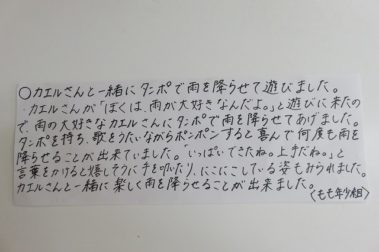 ○カエルさんと一緒にタンポで雨を降らせて遊びました。
・カエルさんが「ぼくは、雨が大好きなんだよ。」と遊びに来たの
で、雨の大好きなカエルさんにタンポで雨を降らせてあげました。
タンポを持ち、歌をうたいながらポンポンすると喜んで何度も雨を
降らせることが出来ていました。「いっぱいできたね。上手だね。」と
言葉をかけると嬉しそうに手を叩いたり、にこにこしている姿もみられました。
カエルさんと一緒に楽しく雨を降らせることが出来ました。
〈もも年少組〉